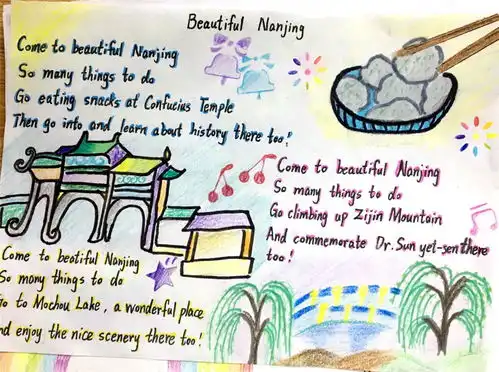 Beautiful Nanjing
Come to beautiful Nanjing
So many things to do
Go eating snacks at Confucius Temple
Then go into and learn about history there too!
Come to beautiful Nanjing
So many things to do
Go climbing up Zijin Mountain
And commemorate Dr. Sun yet-sen there
too!
Come to beotiful Nanjing
So many things to do
Go to Mochou Lake, a wonderful place
And enjoy the nice scenery there too!